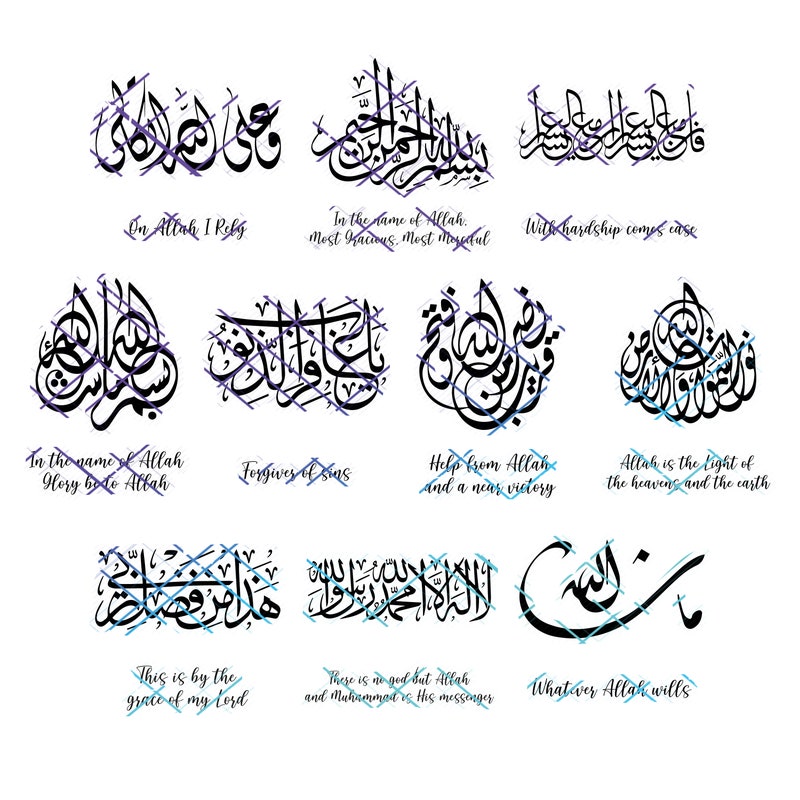 وعلى الله اتكالي
بسم الله الرحمن الرحيم
فإن مع العسر يسرا إن مع العسر يسرا
On Allah I Rely
In the name of Allah,
Most Gracious, Most Merciful
With hardship comes ease
بسم الله ما شاء الله
يا غافر الذنوب
نصر من الله وفتح قريب
الله نور السموات والأرض
In the name of Allah
Glory be to Allah
Forgiver of sins
Help from Allah
and a near victory
Allah is the Light of
the heavens and the earth
هذا من فضل ربي
لا إله إلا الله محمد رسول الله
ما شاء الله
This is by the
grace of my Lord
There is no god but Allah
and Muhammad is His messenger
Whatever Allah wills